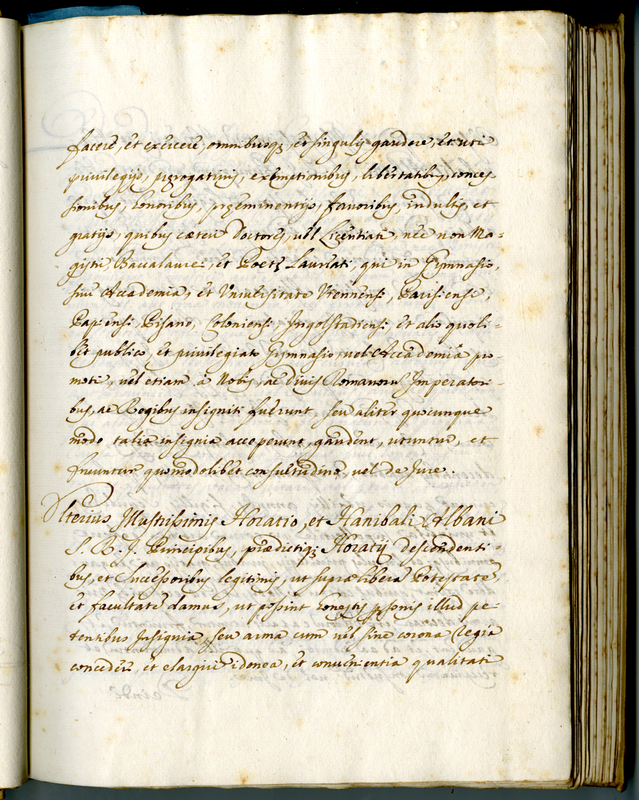 facere, et exercere, omnibusq; et singulis gaudere, et uti
privilegijs, prærogativis, exemptionibus, libertatibus, conces
sionibus, honoribus, præeminentijs, favoribus, indultis, et
gratijs, quibus cæteri Doctores, vel Licentiati, nec non Ma-
gistri, Baccalaurei, et Poetæ Laureati, qui in Gymnasio,
sive Accademia, et Universitate Viennensi, Parisiensi,
Papiensi, Pisano, Coloniensi, Ingolstadiensi, et alio quoli-
bet publico, et privilegiato Gymnasio, vel Accademia pro
moti, vel etiam à Nobis, ac Divis Romanorũ Imperatori-
bus, ac Regibus insigniti fuerunt, seu aliter quocunque
modo talia insignia acceperunt, gaudent, utuntur, et
fruuntur quomodolibet consuetudine, vel de Jure.
Ulterius Illustrissimis Horatio, et Hanibali Albani
S. R. J. Principibus, prædictiq; Horatij descendenti-
bus, et Successoribus legitimis, ut supra libera Potestate,
et facultate damus, ut possint honestis personis illud pe-
tentibus Insignia, seu arma cum vel sine corona Regia
concedere, et elargiri idonea, et convenientia qualitati